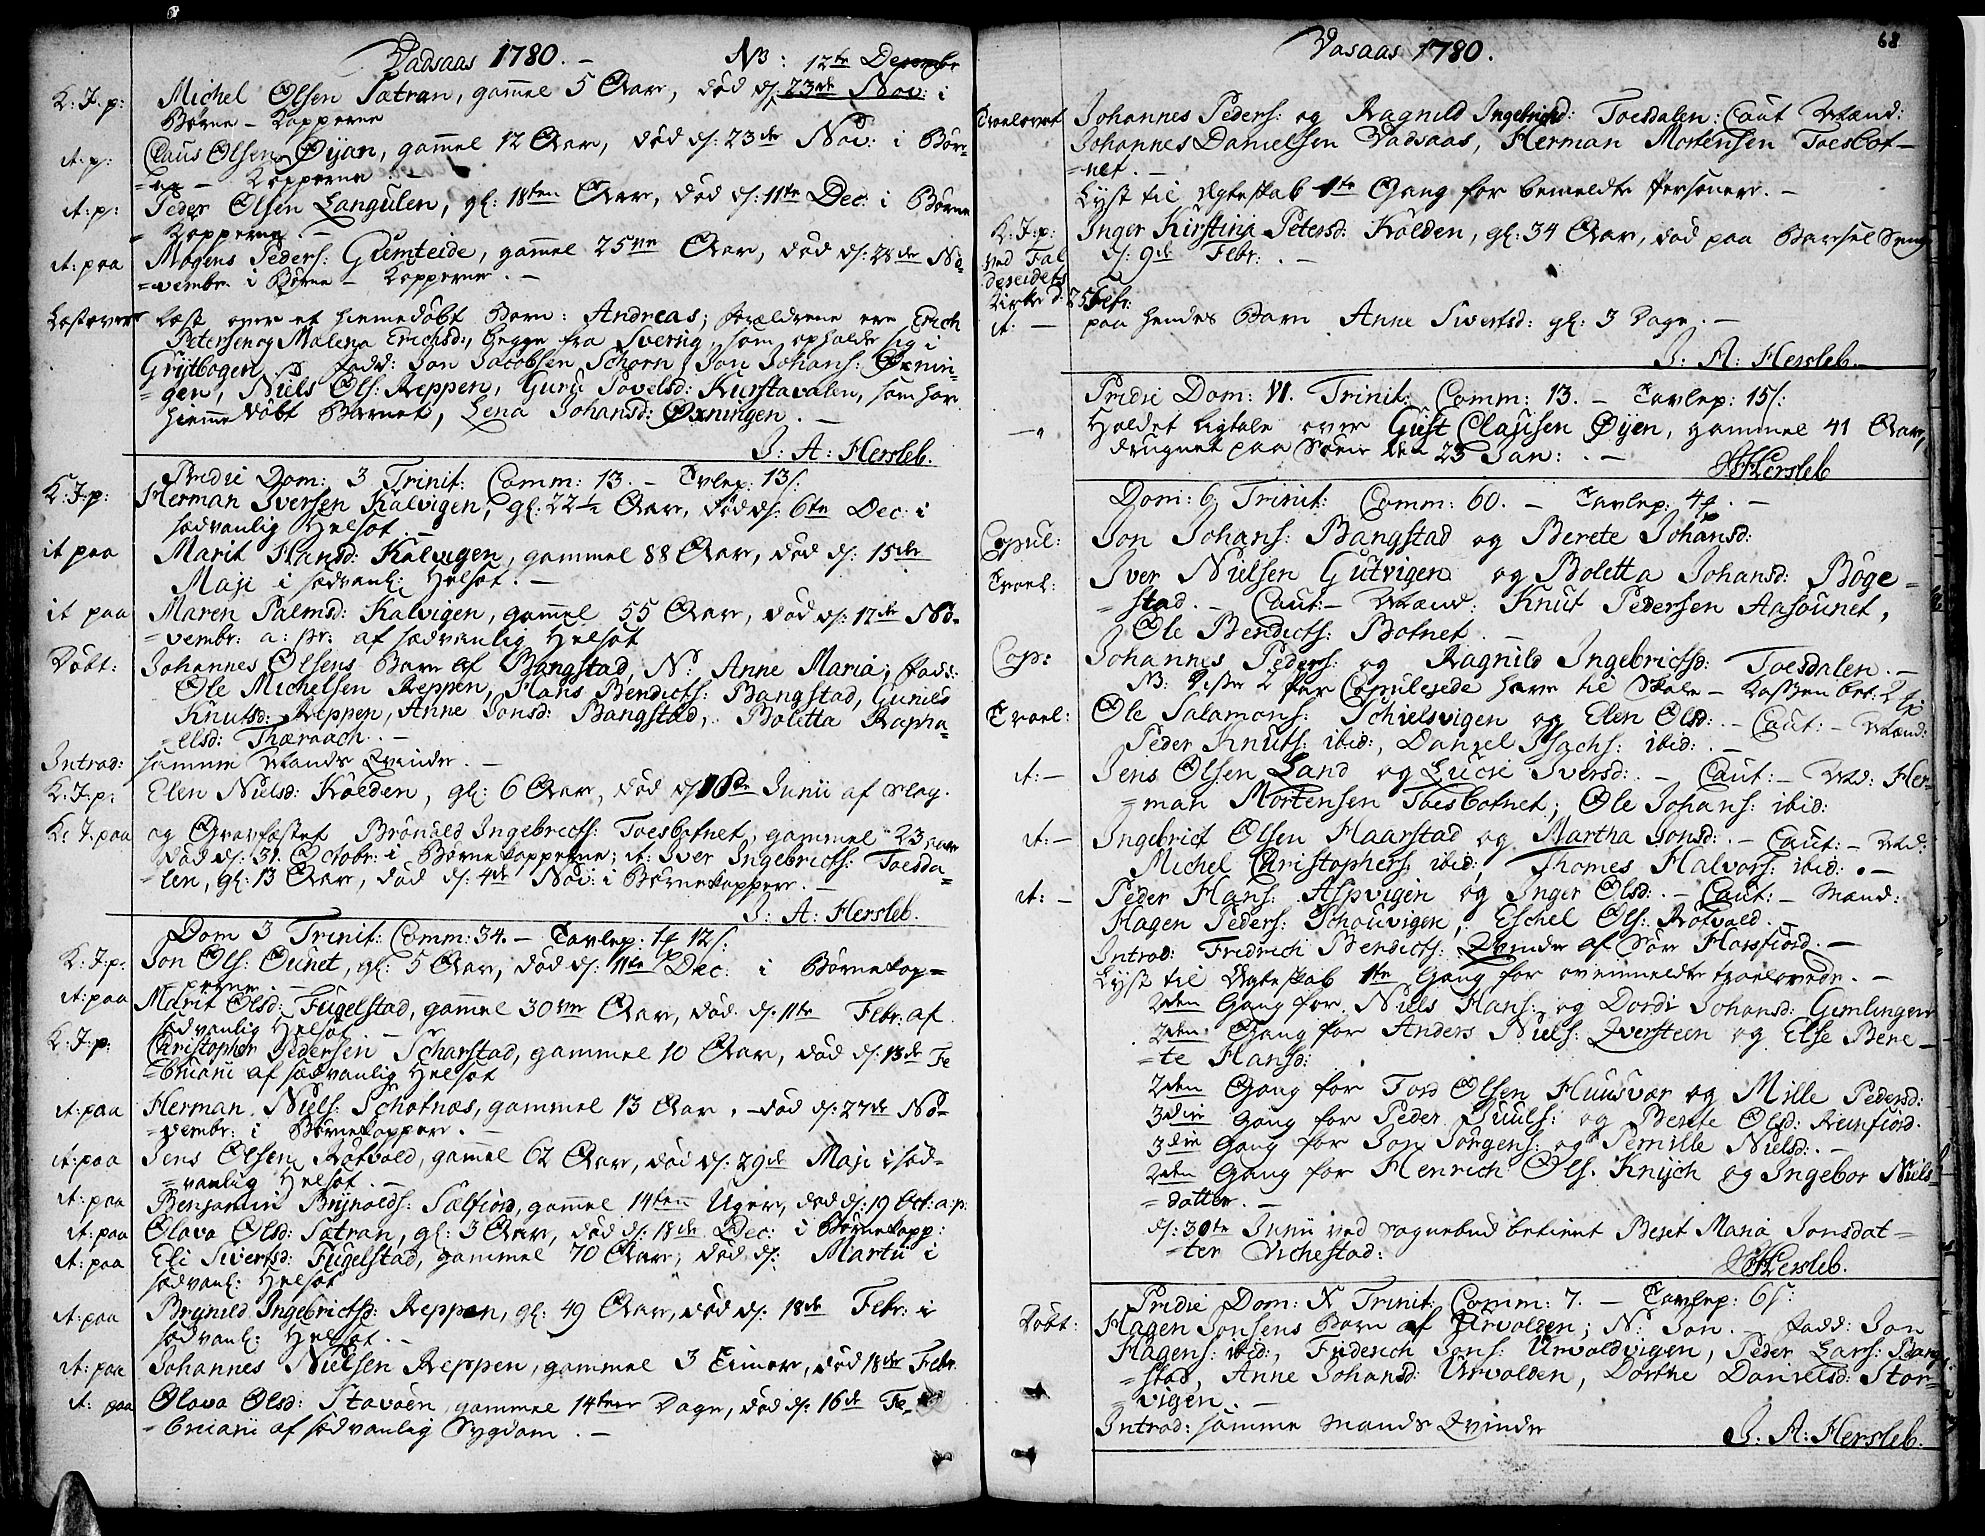 Vadsaas 1780. – NB: 12te Decembr
K: J: p: Michel Olsen Sætran, gammel 5 Aar, død d: 23de Nov: i
Børne – Kopperne
it: p: Claus Olsen Øijan, gammel 12 Aar, død d: 23de Nov: i Bør-
=ne – Kopperne –
it: p: Peder Olsen Langulen, gl: 18ten Aar, død d: 11te Dec: i Børne
Kopperne. –
it: paa Mogens Peders: Gumteide, gammel 25ve Aar, død d: 28de No-
=vembr. i Børne – Kopperne. –
Læst over et hiemedøbt Barn: Andreas; forældrene ere Erich
Petersen og Malena Erichsd:, begge fra Sverrig, som opholde sig i
Grijtbogen. Fadd: Jon Jacobsen Schorn, Jon Johans: Øxnin-
=gen, Niels Ols: Reppen, Guru Povelsd: Kurstavalen, som har
hiemme døbt Barnet, Lena Johansd: Øxningen. –
J: A: Hersleb.
Pridie Dom: 3 Trinit: Comm: 13. – Tavlep: 13 s:
K: J: p: Herman Iversen Kalvigen, gl: 22 1/2 Aar, død d: 6te Dec: i
sædvanlig Helsot. –
it paa Marit Hansd: Kalvigen, gammel 88 Aar, død d: 15de
Maji i sædvanl: Helsot. –
it paa Maren Palmsd: Kalvigen, gammel 55 Aar, død d: 17de No-
=vembr: a: pr: af sædvanlig Helsot
Døbt: Johannes Olsens Barn af Bangstad, N: Anne Maria; Fadd:
Ole Michelsen Reppen, Hans Bendicts: Bangstad, Gunild
Knutsd: Reppen, Anne Jonsd: Bangstad, Boletta Rapha-
=elsd: Thæraach. –
Introd: samme Mands Qvinde. –
K: J: p: Elen Nielsd: Kolden, gl: 6 Aar, død d: 16de Junii af Slag.
K: J: paa og Gravfæstet Brønild Ingebricts: Toesbotnet, gammel 23 Aar
død d: 31. Octobr: i Børnekopperne; it: Iver Ingebricts: Toesda-
=len, gl: 13 Aar, død d: 4de Nov: i Børnekopper. –
J: A: Hersleb.
Dom 3 Trinit: Comm: 34. – Tavlep: 12 s:
K: J: p: Jon Ols: Ounet, gl: 5 Aar, død d: 11te Dec: i Børnekop=
perne. –
it: paa Marit Olsd: Fugelstad, gammel 30ve Aar, død d: 11te Febr: af
sædvanlig Helsot. –
K: J: p: Christopher Pedersen Scharstad, gammel 10 Aar, død d: 13de Fe
=bruarii af sædvanlig Helsot
it: paa Herman Niels: Schotnæs, gammel 13 Aar, – død d: 27de No-
=vembr: i Børnekopper. –
it: paa Jens Olsen Rotvold, gammel 62 Aar, død d: 29de Maji i sæd-
=vanlig Helsot. –
it: paa Benjamin Brijnolds: Sælfiord, gammel 14ten Uger, død d: 19 Oct: a: p:
it: paa Olava Olsd: Sætran, gl: 3 Aar, død d: 18de Dec: i Børnekopp:
it: paa Eli Sivertsd: Fugelstad, gammel 70 Aar, død d: Martii i
sædvanl: Helsot
it: paa Brynild Ingebrictsd: Reppen, gl: 49 Aar, død d: 18de Febr: i
sædvanl: Helsot. –
it: paa Johannes Nielsen Reppen, gammel 3 Timer, død 18de Febr.
it: paa Olava Olsd: Stavøen, gammel 14ten Dage, død d: 16de Fe-
=bruarii af sædvanlig Sygdom. –
68
Vasaas 1780.
Troelovet Johannes Peders: og Ragnild Ingebrichsd: Toesdalen: Caut Mænd:
Johannes Danielsen Vadsaas, Herman Mortensen Toesbot–
=net. –
Lyst til Ægteskab 1te Gang for bemeldte Personer. –
K: J: p: Inger Kirstina Petersd: Kolden, gl: 34 Aar, død paa Barsel Seng
d: 9de Febr: . –
ved Fol
dereidets
Kirke d: 25 Febr:
it: – paa hendes Barn Anne Sivertsd: gl: 3 Dage. –
J: A: Hersleb. –
Pridie Dom: VI. Trinit: Comm: 13. – Tavlep: 15 s:
Holdet Ligtale over Gust Clausen Øijen, gammel 41 Aar,
drugnet paa Søen den 23 Jan: . –
JAHersleb
Dom: 6 Trinit: Comm: 60. – Tavlep: 4 . –
Copul: Jon Johans: Bangstad og Berete Johansd:
Troel: Iver Nielsen Gutvigen og Boletta Johansd: Böge=
=stad. – Caut: – Mænd: Knut Pedersen Aasounet,
Ole Bendicts: Botnet. –
Cop: Johannes Peders: og Ragnild Ingebrictsd: Toesdalen. –
NB: disse 2 Par Copulerede have til Skole – Kassen bet: 2
Troel: Ole Salamons: Schielsvigen og Elen Olsd: – Caut: – Mænd:
Peder Knuts: ibid:, Daniel Isachs: ibid: . –
it: – Jens Olsen Land og Lucie Iversd: – Caut: – Md: Her-
=man Mortensen Toesbotnet; Ole Johans: ibid:
it: – Ingebrict Olsen Haarstad og Martha Jonsd: – Caut: – Md:
Michel Christophers: ibid:, Thomes Halvors: ibid: . –
it: – Peder Hans: Aspvigen og Inger Olsd: – Caut: – Mænd:
Hagen Peders: Schouvigen, Eschel Ols: Rotvold. –
Introd: Fridrich Bendicts: Qvinde af Sør Horsfiord. –
Lyst til Ægteskab 1te Gang for ovenmeldte troelovede. –
2den Gang for Niels Hans: og Dordi Johansd: Gimlingen
2den Gang for Anders Niels: Qversteen og Else Bere–
=te Hansd:
2den Gang for Tord Olsen Huusvær og Mille Pedersd:
3die Gang for Peder Juuls: og Berete Olsd: Reinfiord.
3die Gang for Jon Jørgens: og Pernille Nielsd: . –
2den Gang for Henrich Ols: Knijch og Ingebor Niels
=datter. –
d: 30te Junii ved Sognebud betient Beret Maria Jonsdat=
=ter Vichestad:
JAHersleb.
Pridie Dom: X Trinit: Comm: 7. – Tavlep: 6 s:
Døbt: Hagen Jonsens Barn af Urvolden; N: Jon. Fadd: Jon
Hagens: ibid:, Friderich Jons: Urvoldvigen, Peder Lars: Bang-
=stad, Anne Johansd: Urvolden, Dorthe Danielsd: Stor-
=vigen. –
Introd: samme Mands Qvinde
J: A: Hersleb.